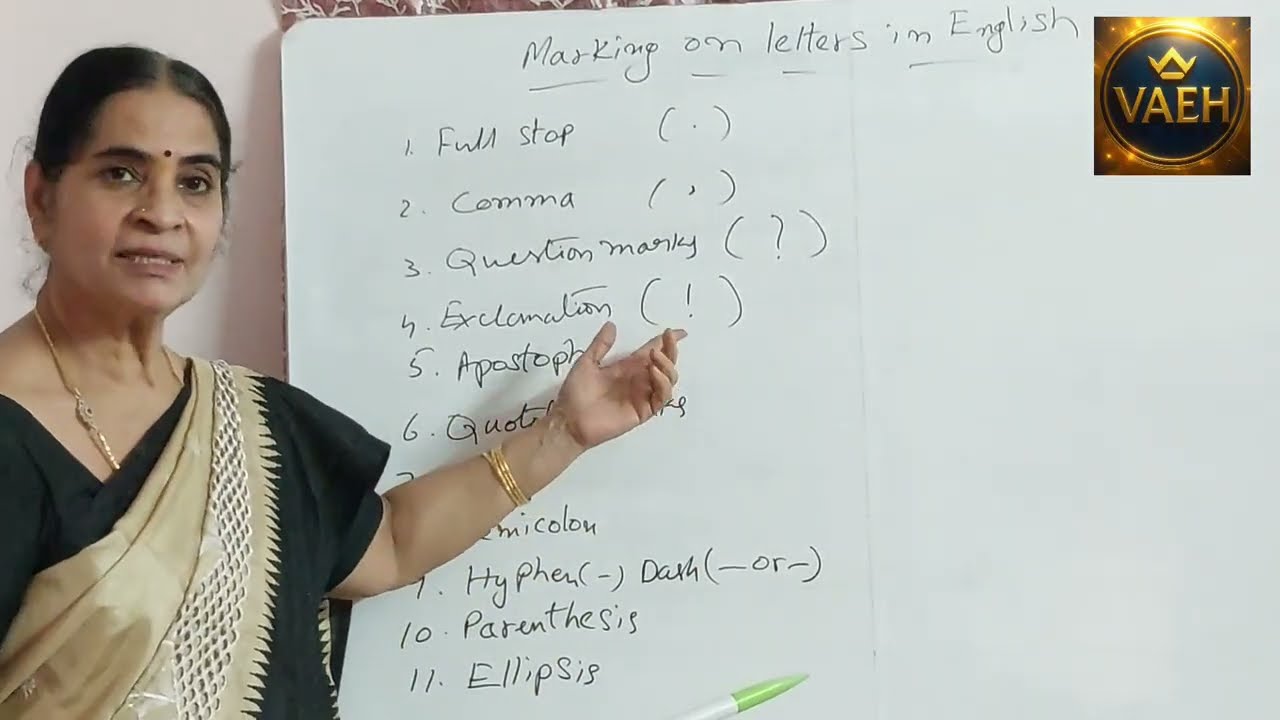 Marking on letters in English
VAEH
1. Full stop ( . )
2. Comma ( , )
3. Question marks ( ? )
4. Exclamation ( ! )
5. Apostoph
6.
micolon
9. Hyphen(-) Dash(—or–)
10. Parenthesis
11. Ellipsis